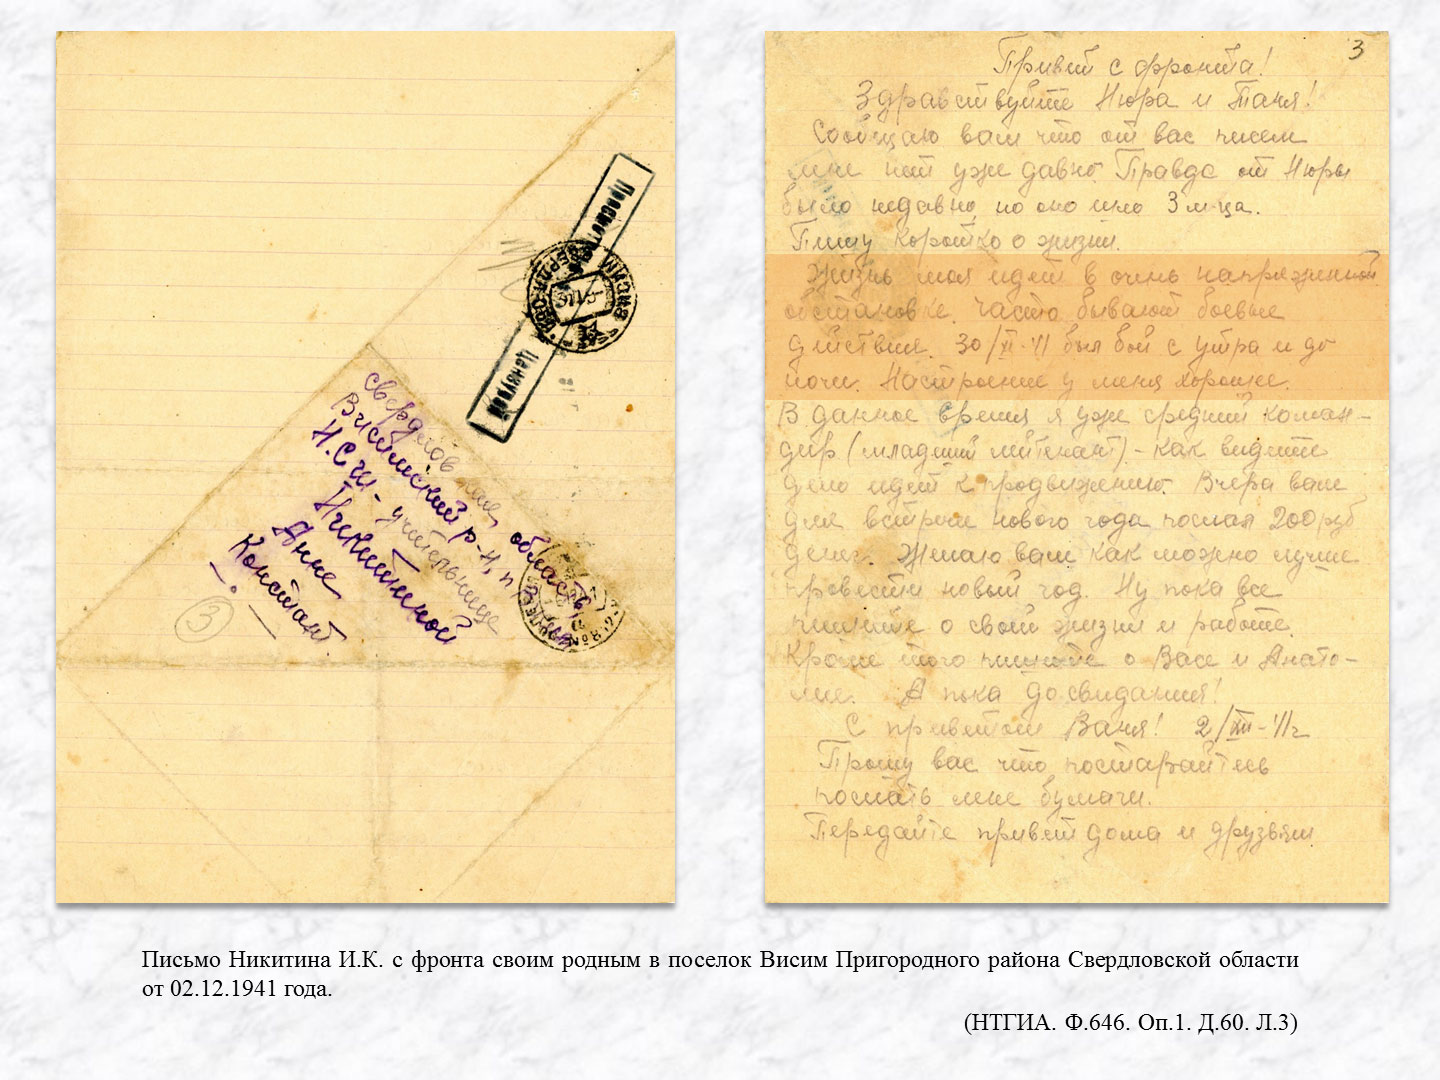 Просмотрено
Цензурой
Свердловская область,
Висимский р-н, п.
Н.С.Ш - учительнице
Никитиной
Анне
Констант.
3
3
Привет с фронта!
Здравствуйте Нюра и Таня!
Сообщаю вам что от вас писем
мне нет уже давно. Правда от Нюры
было недавно, но оно шло 3 м-ца.
Пишу коротко о жизни.
Жизнь моя идет в очень напряженной
обстановке. Часто бывают боевые
действия. 30/XI-41 был бой с утра и до
ночи. Настроение у меня хорошее.
В данное время я уже средний коман-
дир (младший лейтенант) - как видите
дело идет к продвижению. Вчера вам
для встречи нового года послал 200 руб
денег. Желаю вам как можно лучше
провести новый год. Ну пока все
пишите о своей жизни и работе.
Кроме того пишите о Васе и Анато-
лие. А пока до свидания!
С приветом Ваня! 2/XII-41г
Прошу вас что постарайтесь
послать мне бумаги.
Передайте привет дома и друзьям.
Письмо Никитина И.К. с фронта своим родным в поселок Висим Пригородного района Свердловской области
от 02.12.1941 года.
(НТГИА. Ф.646. Оп.1. Д.60. Л.3)